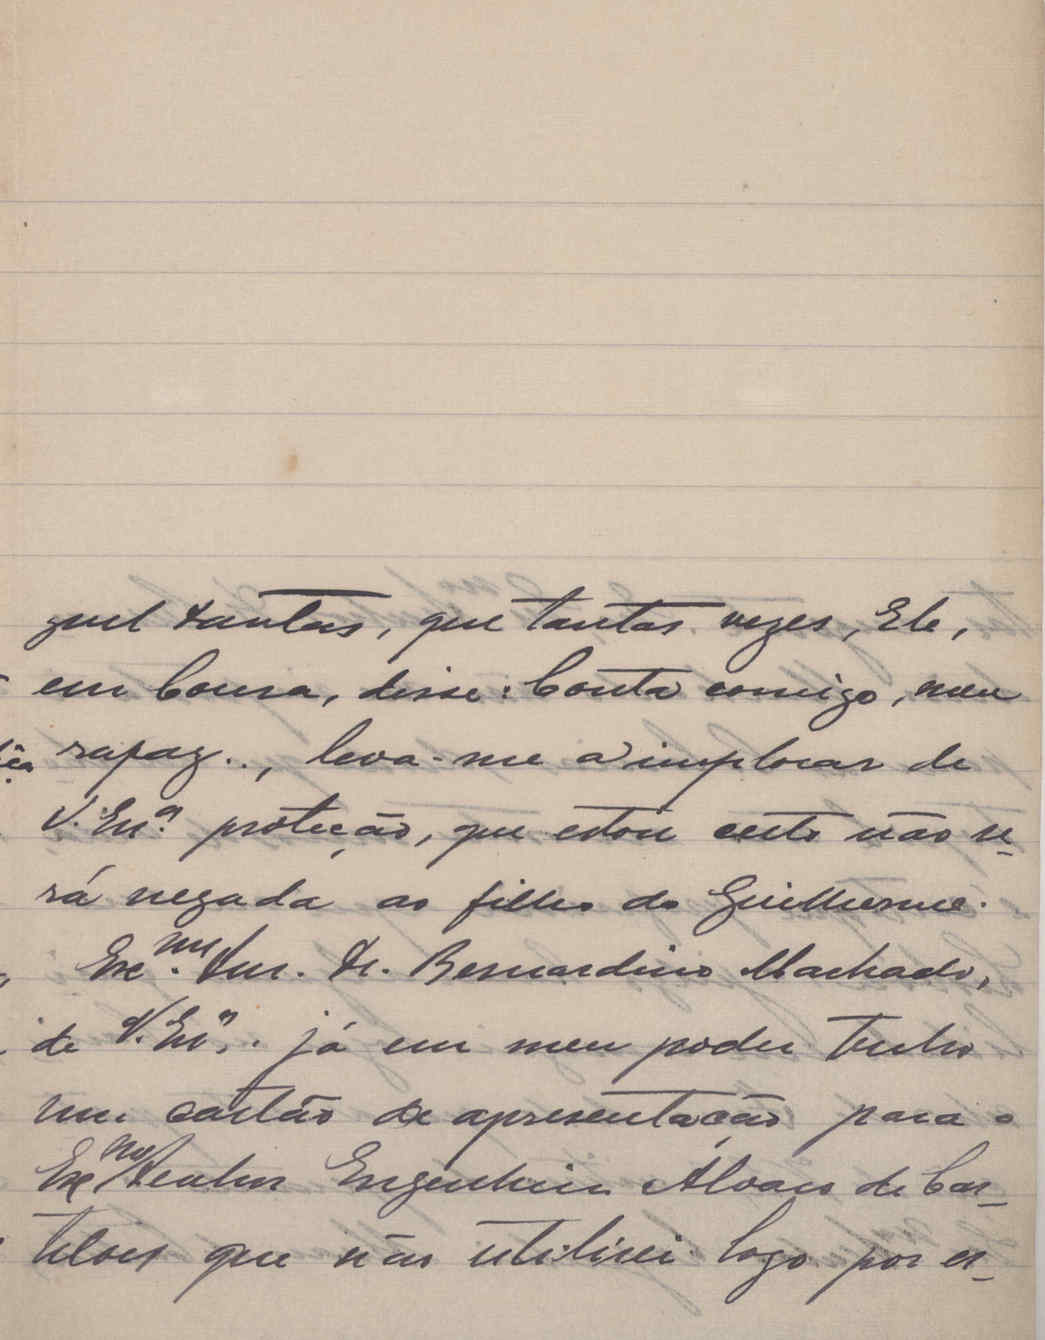 guel Dantas, que tantas vezes, Ele,
em Coura, disse: Conta comigo, meu
rapaz.., leva-me a implorar de
V. Exª. proteção, que estou certo não se-
rá negada ao filho do Guilherme.
Exc.mo Snr. Dr. Bernardino Machado,
de V. Exª. já em meu poder tenho
um cartão de apresentação para o
Exmo Senhor Engenheiro Alvaro de Cas-
telões que não utilisei logo por es-